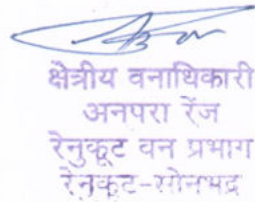 क्षेत्रीय वनाधिकारी
अनपरा रेंज
रेनुकूट वन प्रभाग
रेनुकूट-सोनभद्र